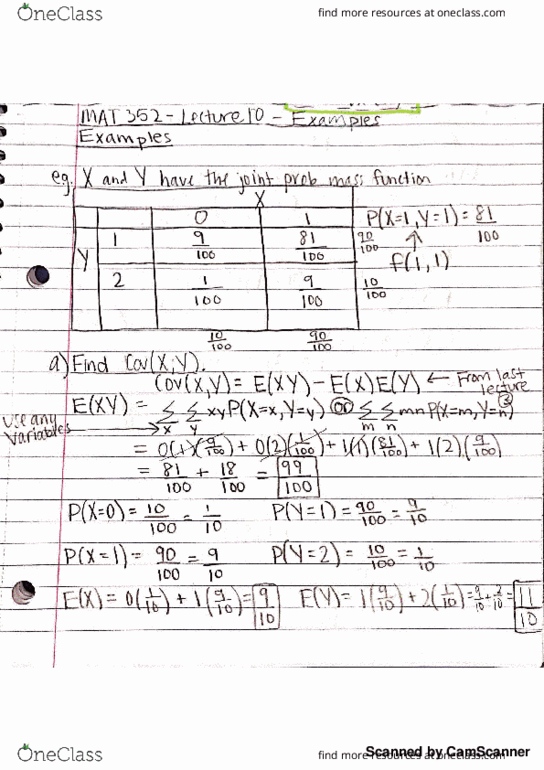 OneClass
find more resources at oneclass.com
MAT 352 - Lecture 10 - Examples
Examples
eg. X and Y have the joint prob mass function
X
0 1 P(X=1, Y=1) = 81/100
Y 1 9/100 81/100 90/100 f(1,1)
2 1/100 9/100 10/100
10/100 90/100
a) Find Cov(X,Y).
Cov(X,Y) = E(XY) - E(X)E(Y) ← From last lecture
E(XY) = Σ Σ xy P(X=x, Y=y) or Σ Σ mn P(X=m, Y=n)
use any variables x y m n
= 0(1)(9/100) + 0(2)(1/100) + 1(1)(81/100) + 1(2)(9/100)
= 81/100 + 18/100 = 99/100
P(X=0) = 10/100 = 1/10 P(Y=1) = 90/100 = 9/10
P(X=1) = 90/100 = 9/10 P(Y=2) = 10/100 = 1/10
E(X) = 0(1/10) + 1(9/10) = 9/10 E(Y) = 1(9/10) + 2(1/10) = 9/10 + 2/10 = 11/10
OneClass
find more resources at oneclass.com
Scanned by CamScanner